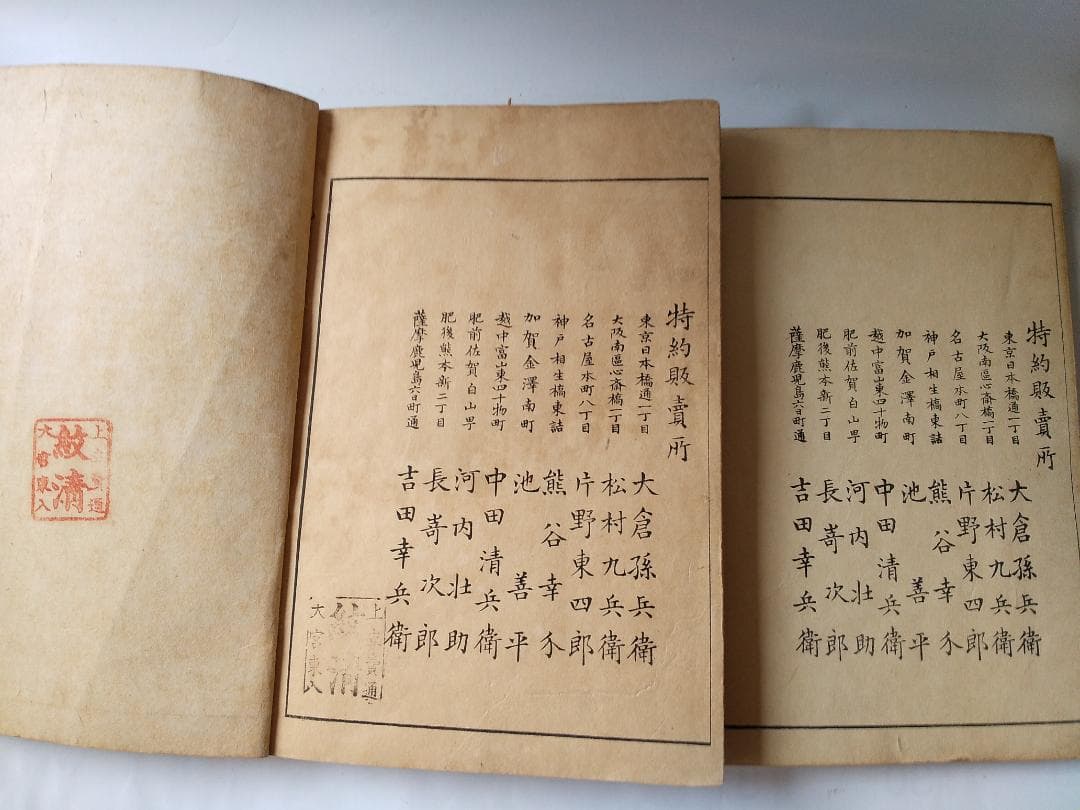 特約販賣所
東京日本橋通一丁目 大倉孫兵衛
大阪南區心斎橋一丁目 松村九兵衛
名古屋本町八丁目 片野東四郎
神戸相生橋東詰 熊谷幸介
加賀金澤南町 池善平
越中富山東四十物町 中田清兵衛
肥前佐賀白山町 河内壮助
肥後熊本新二丁目 長嵜次郎
薩摩鹿児島六日町通 吉田幸兵衛
上 通
清
大 東入
特約販賣所
東京日本橋通一丁目 大倉孫兵衛
大阪南區心斎橋一丁目 松村九兵衛
名古屋本町八丁目 片野東四郎
神戸相生橋東詰 熊谷幸介
加賀金澤南町 池善平
越中富山東四十物町 中田清兵衛
肥前佐賀白山町 河内壮助
肥後熊本新二丁目 長嵜次郎
薩摩鹿児島六日町通 吉田幸兵衛
上 通
清
大 入